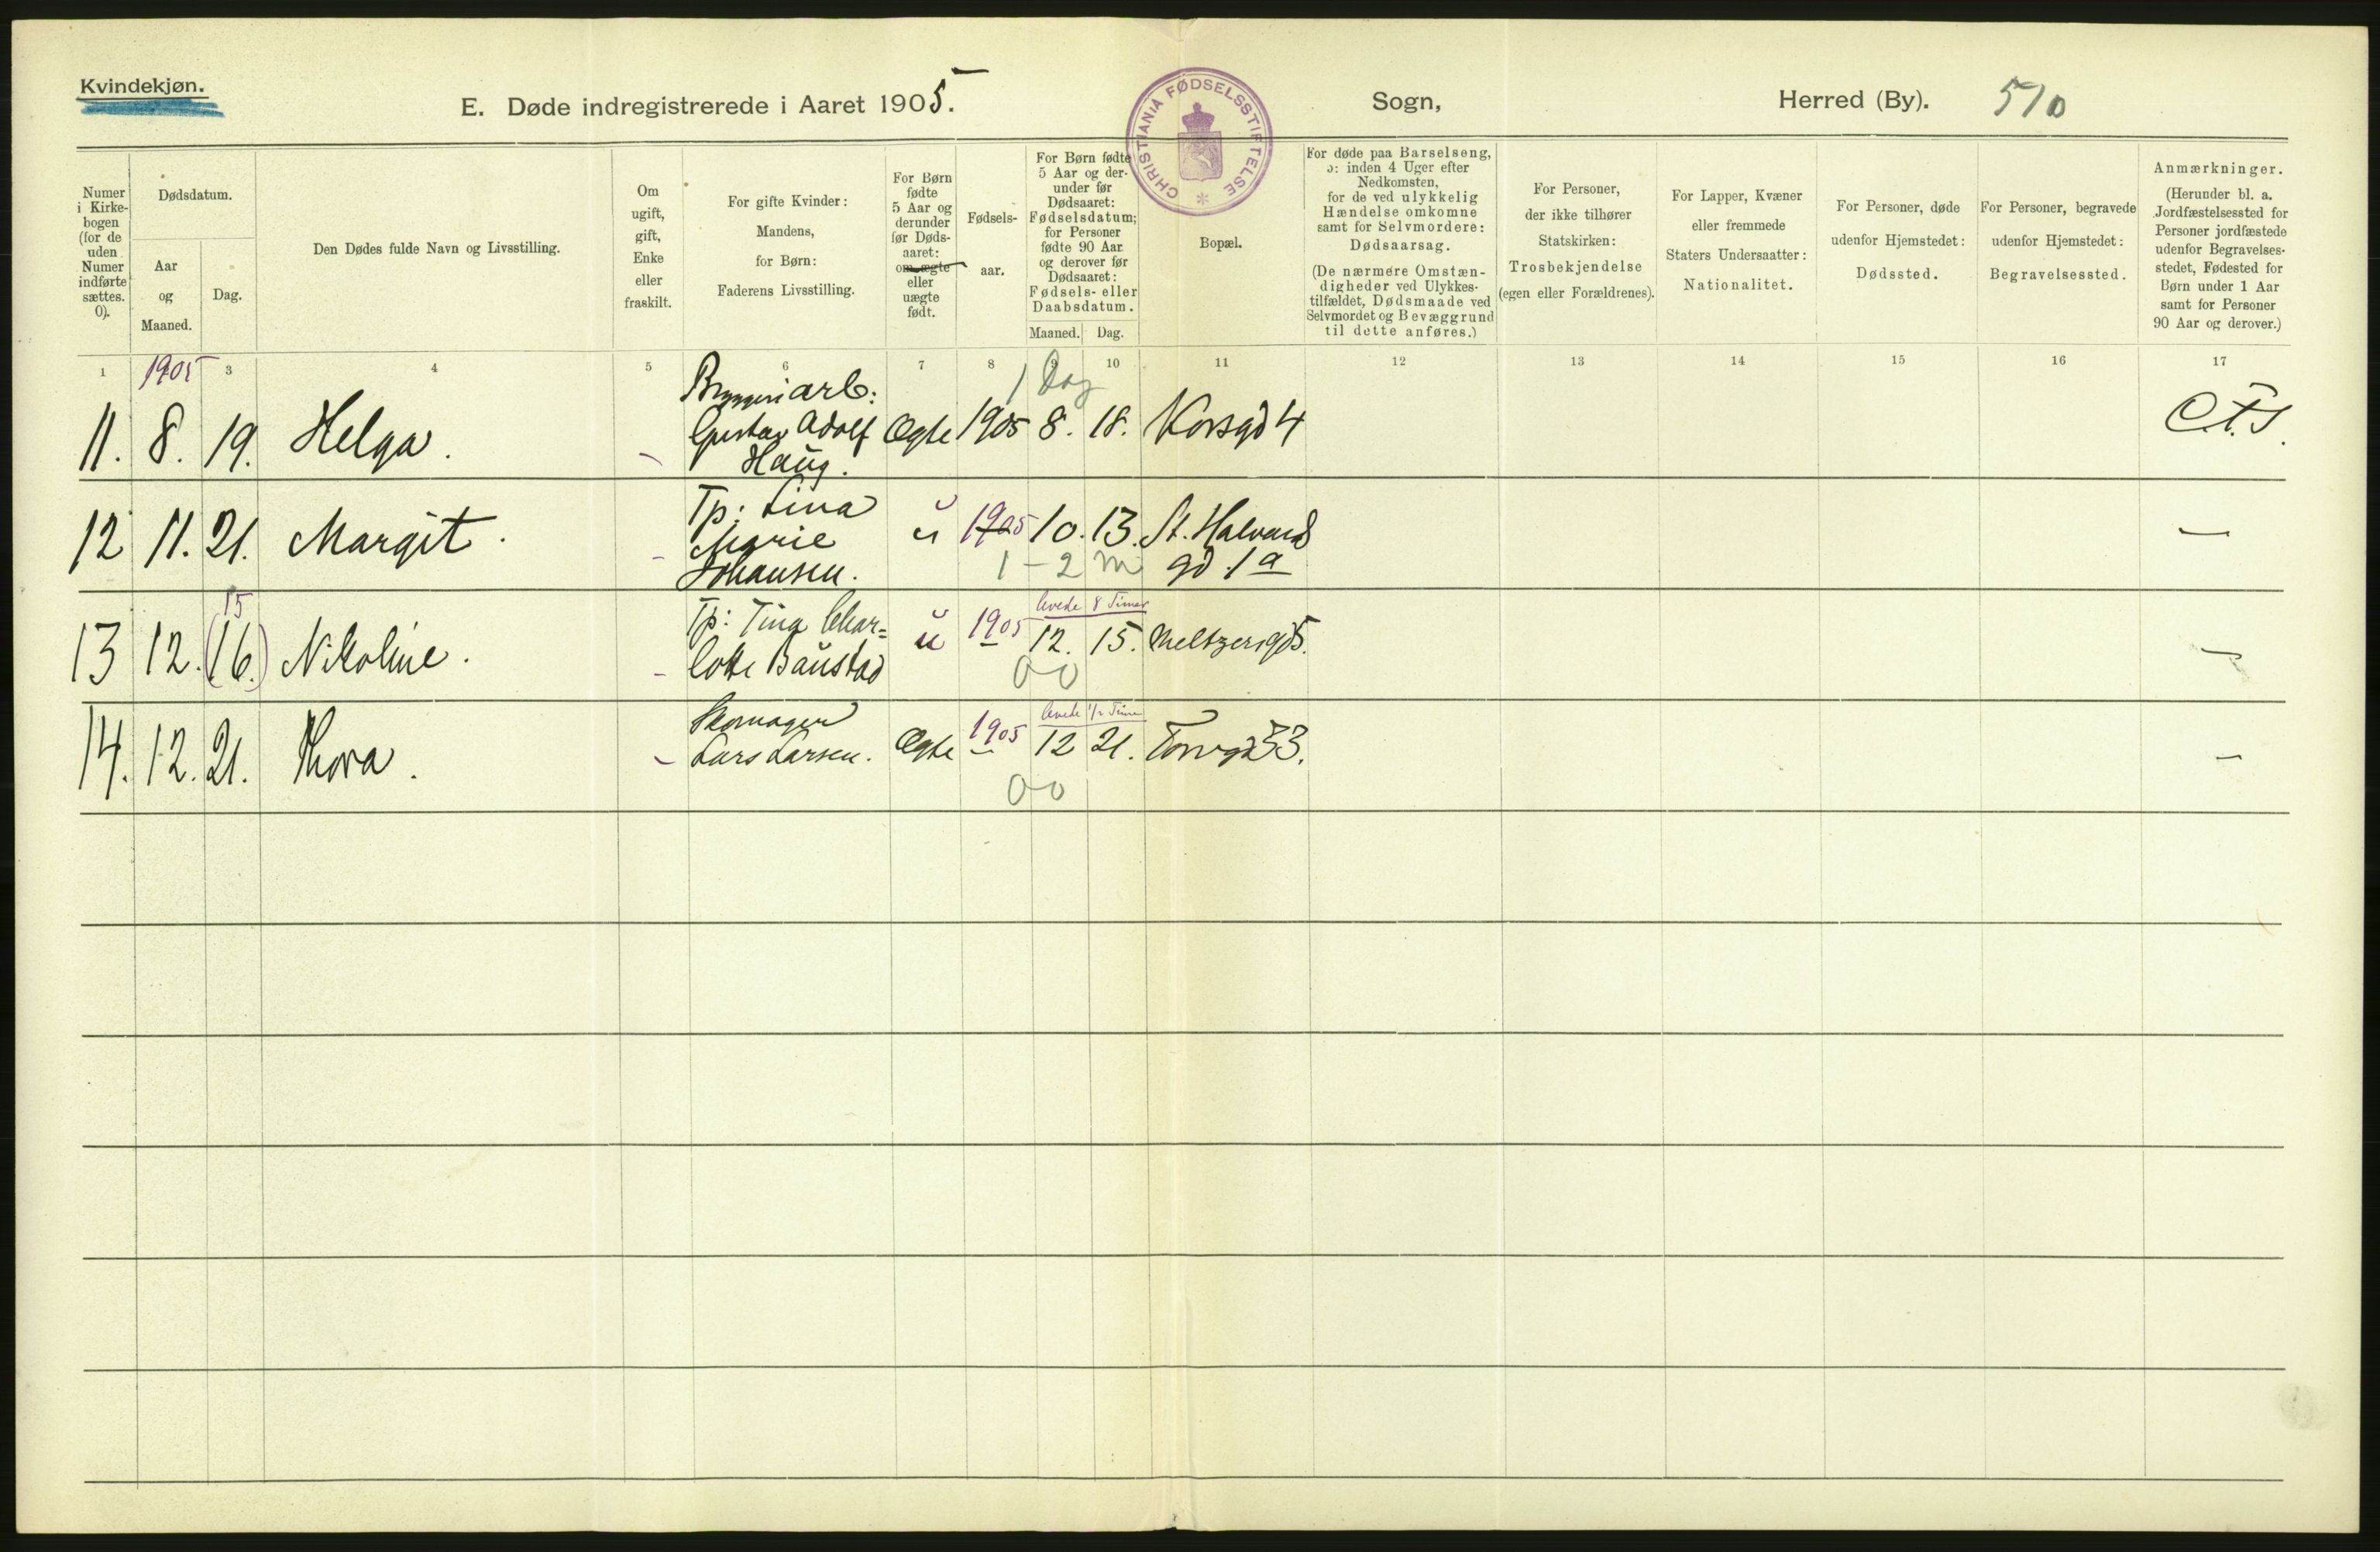 Kvindekjøn.
E. Døde indregistrerede i Aaret 1905.
CHRISTIANIA FØDSELSSTIFTELSE
Sogn,
Herred (By).
510
Numer
i Kirke-
bogen
(for de
uden
Numer
indførte
sættes.
0).
Dødsdatum.
Aar
og
Maaned.
Dag.
Den Dødes fulde Navn og Livsstilling.
Om
ugift,
gift,
Enke
eller
fraskilt.
For gifte Kvinder:
Mandens,
for Børn:
Faderens Livsstilling.
For Børn
fødte
5 Aar og
derunder
før Døds-
aaret:
om ægte
eller
uægte
født.
Fødsels-
aar.
For Børn fødte
5 Aar og der-
under før
Dødsaaret:
Fødselsdatum;
for Personer
fødte 90 Aar
og derover før
Dødsaaret:
Fødsels- eller
Daabsdatum.
Maaned.
Dag.
Bopæl.
For døde paa Barselseng,
ɔ: inden 4 Uger efter
Nedkomsten,
for de ved ulykkelig
Hændelse omkomne
samt for Selvmordere:
Dødsaarsag.
(De nærmere Omstæn-
digheder ved Ulykkes-
tilfældet, Dødsmaade ved
Selvmordet og Bevæggrund
til dette anføres.)
For Personer,
der ikke tilhører
Statskirken:
Trosbekjendelse
(egen eller Forældrenes).
For Lapper, Kvæner
eller fremmede
Staters Undersaatter:
Nationalitet.
For Personer, døde
udenfor Hjemstedet:
Dødssted.
For Personer, begravede
udenfor Hjemstedet:
Begravelsessted.
Anmærkninger.
(Herunder bl. a.
Jordfæstelsessted for
Personer jordfæstede
udenfor Begravelses-
stedet, Fødested for
Børn under 1 Aar
samt for Personer
90 Aar og derover.)
1 1905 3 4 5 6 7 8 9 10 11 12 13 14 15 16 17
1 Dag
Bryggeriarb:
11. 8. 19. Helga. Gustav Adolf Ægte 1905 8. 18. Korsgd 4 C.F.S.
Haug.
Tp: Lina
12 11. 21. Margit. Marie u 1905 10. 13. St. Halvards —
Johansen. 1 - 2 m gd. 1a
15 levede 8 Timer
13 12. (16.) Nikoline. Tp: Tina Char= u 1905 12. 15. Meltzersgd 5. —
lotte Baustad 00
Skomager levede 1/2 Time
14. 12. 21. Thora. Lars Larsen. Ægte 1905 12 21. Torvgd 33. —
00